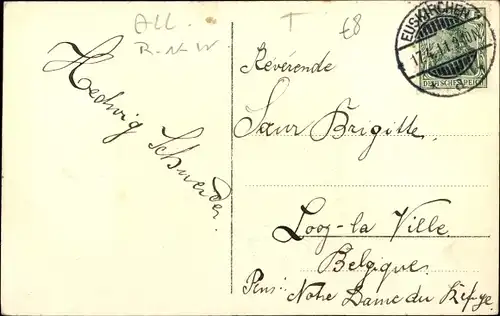 All.
R-N-W.
T
€8
Hedwig Schwerder.
EUSKIRCHEN
17.4.11.9-10N
a
DEUTSCHES REICH
Révérende
Sœur Brigitte.
Looz-la Ville.
Belgique.
Pens: Notre Dame du Refuge.